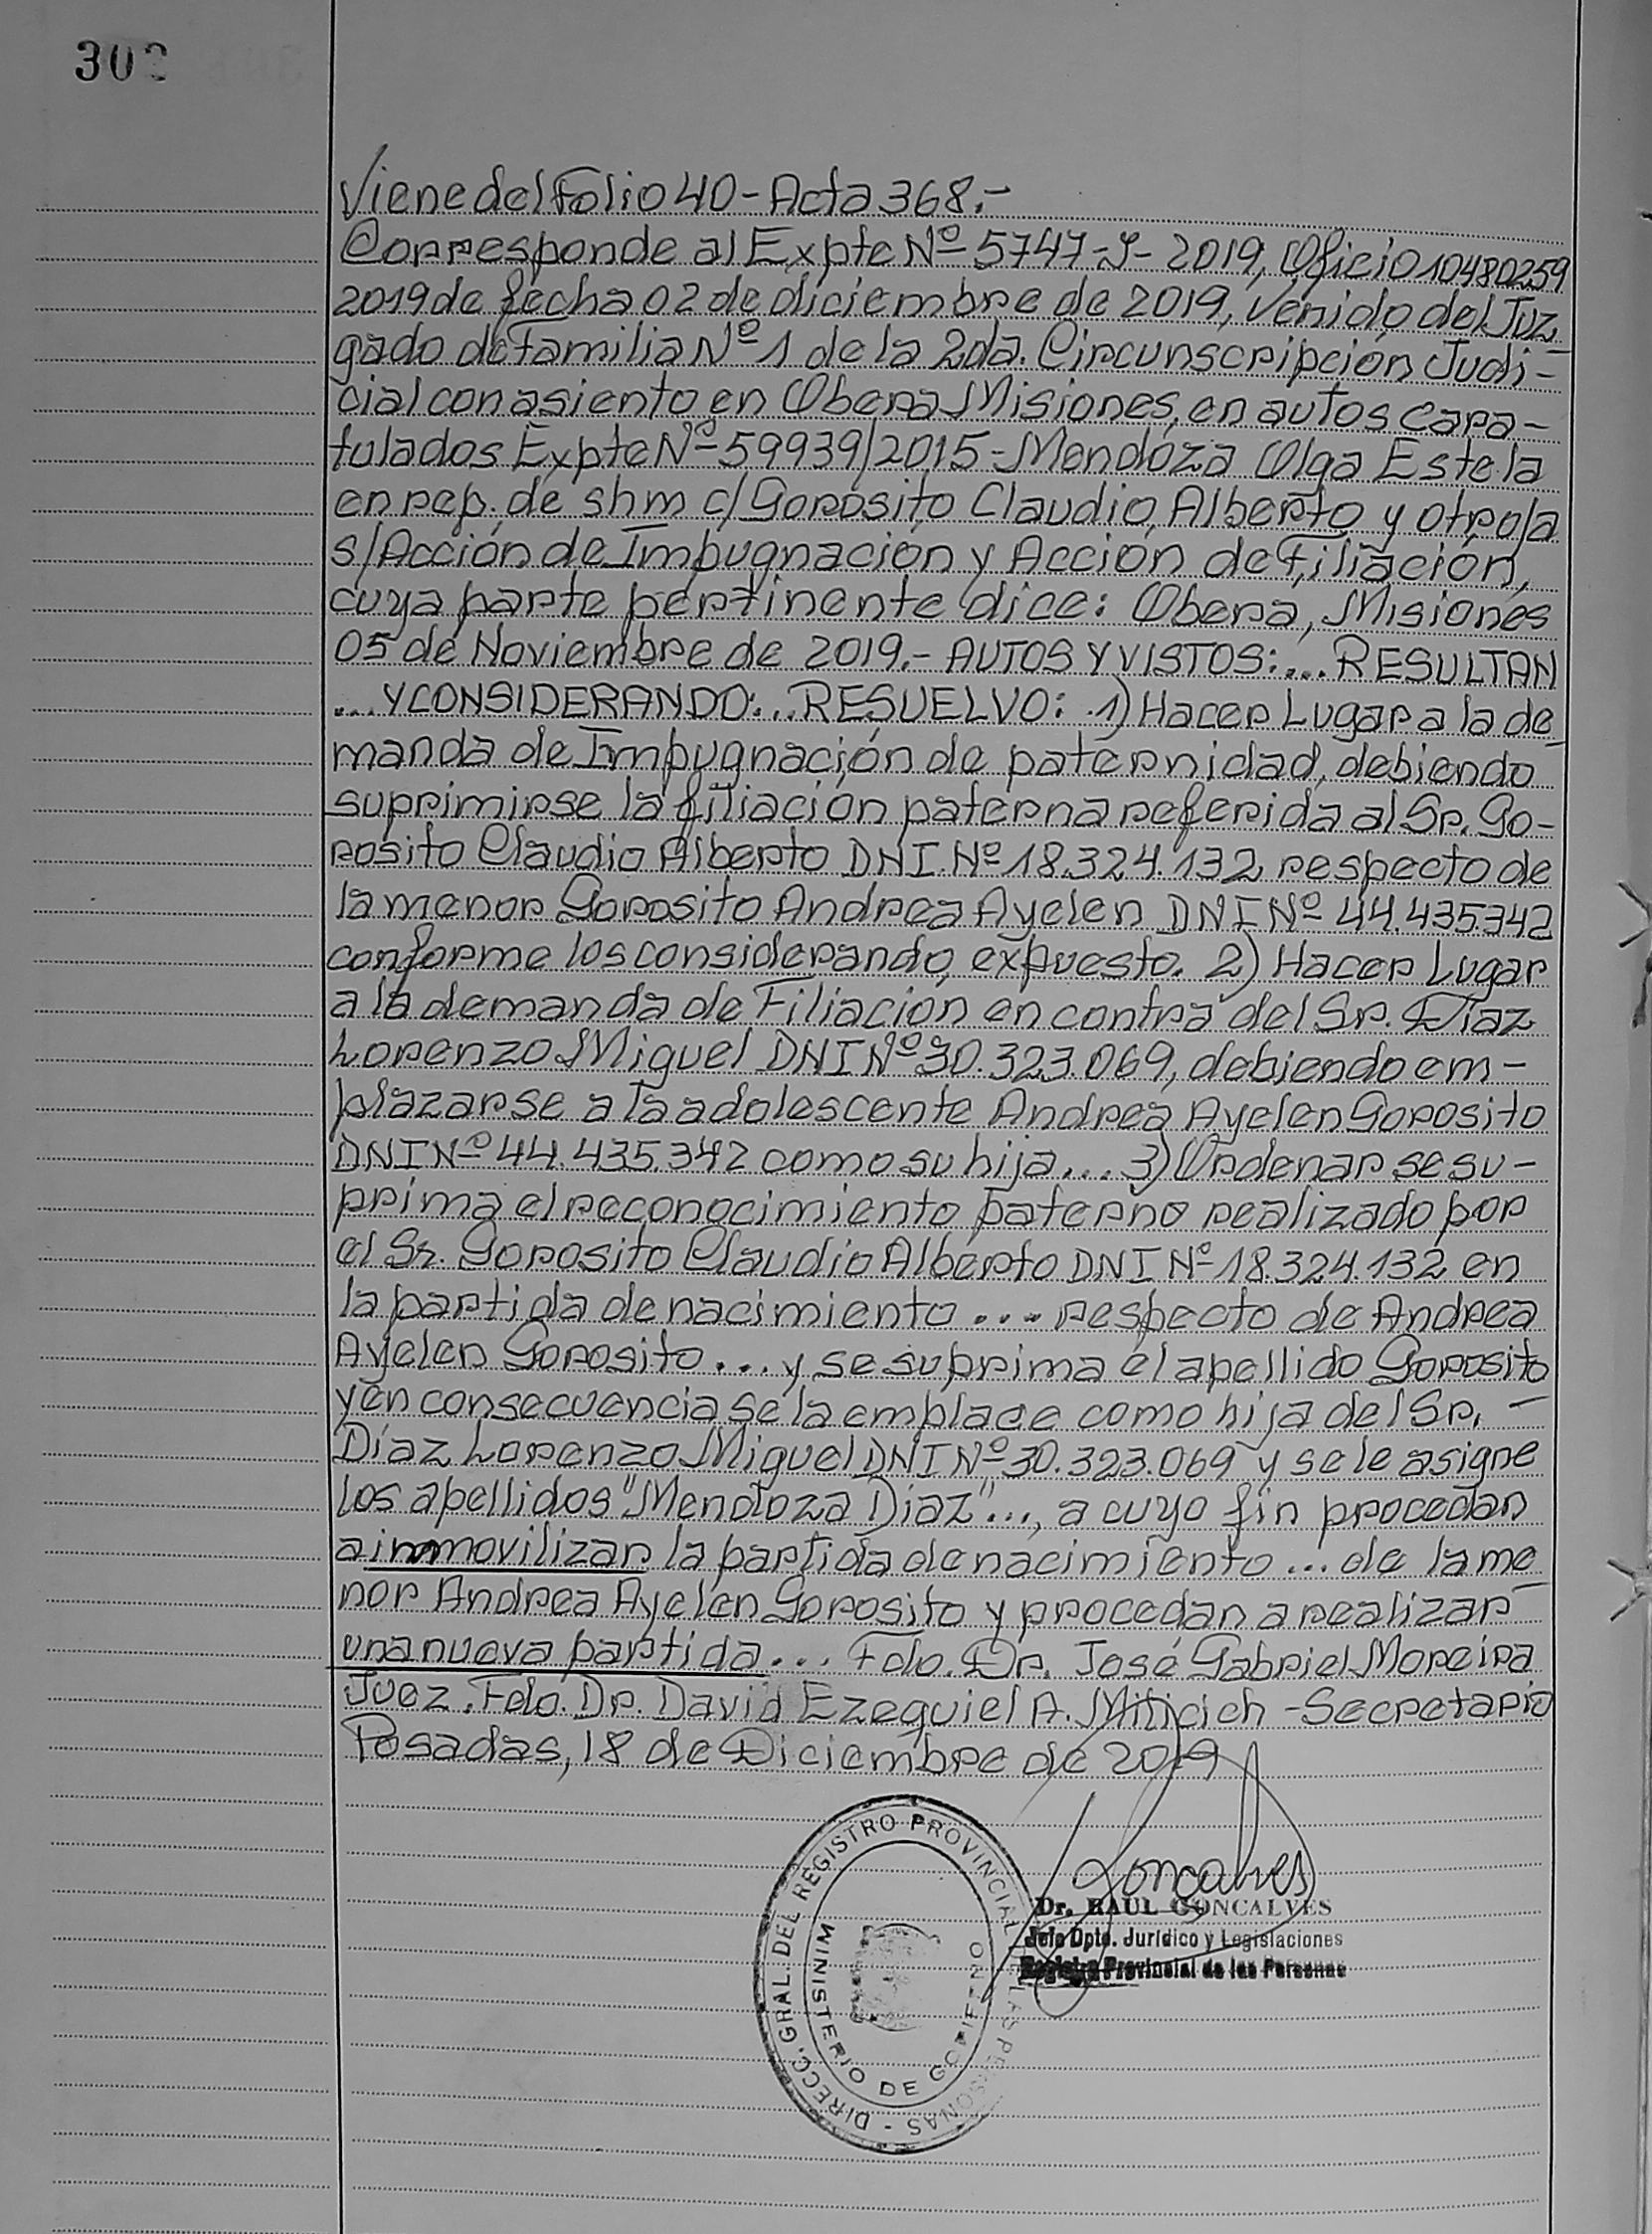 302
Viene del Folio 40 - Acta 368.-
Corresponde al Expte Nº 5747-J- 2019, Oficio 10480259
2019 de fecha 02 de diciembre de 2019, venido del Juz
gado de Familia Nº 1 de la 2da. Circunscripción Judi-
cial con asiento en Obera Misiones, en autos cara-
tulados Expte Nº 59939/2015 - Mendoza Olga Estela
en rep. de shm c/ Gorosito Claudio Alberto y otro/a
s/ Acción de Impugnación y Acción de Filiación,
cuya parte pertinente dice: Obera, Misiones
05 de Noviembre de 2019.- AUTOS Y VISTOS:... RESULTAN
... Y CONSIDERANDO:... RESUELVO: 1) Hacer Lugar a la de
manda de Impugnación de paternidad, debiendo
suprimirse la filiación paterna referida al Sr. Go-
rosito Claudio Alberto DNI. Nº 18.324.132 respecto de
la menor Gorosito Andrea Ayelen DNI Nº 44.435.342
conforme los considerando expuesto. 2) Hacer Lugar
a la demanda de Filiación en contra del Sr. Diaz
Lorenzo Miguel DNI Nº 30.323.069, debiendo em-
plazarse a la adolescente Andrea Ayelen Gorosito
DNI Nº 44.435.342 como su hija... 3) Ordenar se su-
prima el reconocimiento paterno realizado por
el Sr. Gorosito Claudio Alberto DNI Nº 18.324.132 en
la partida de nacimiento .... respecto de Andrea
Ayelen Gorosito... y se suprima el apellido Gorosito
y en consecuencia se la emplace como hija del Sr. -
Díaz Lorenzo Miguel DNI Nº 30.323.069 y se le asigne
los apellidos "Mendoza Diaz"..., a cuyo fin procedan
a inmovilizar la partida de nacimiento... de la me
nor Andrea Ayelen Gorosito y procedan a realizar
una nueva partida... Fdo. Dr. José Gabriel Moreira
Juez. Fdo. Dr. David Ezequiel A. Miticich - Secretario
Posadas, 18 de Diciembre de 2019
Goncalves
Dr. RAUL GONCALVES
Jefe Dpto. Jurídico y Legislaciones
Registro Provincial de las Personas
DIRECC. GRAL. DEL REGISTRO PROVINCIAL DE LAS PERSONAS -
MINISTERIO DE GOBIERNO